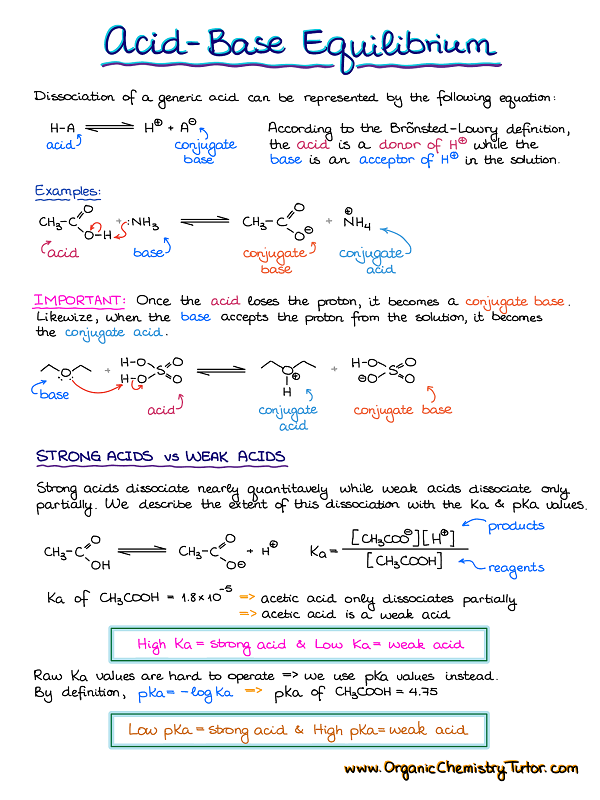 Acid-Base Equilibrium
Dissociation of a generic acid can be represented by the following equation:
H-A ⇌ H⊕ + A⊖
acid
conjugate
base
According to the Brõnsted-Lowry definition,
the acid is a donor of H⊕ while the
base is an acceptor of H⊕ in the solution.
Examples:
CH₃-C O O-H + :NH₃ ⇌ CH₃-C O O⊖ + ⊕NH₄
acid
base
conjugate
base
conjugate
acid
IMPORTANT: Once the acid loses the proton, it becomes a conjugate base.
Likewize, when the base accepts the proton from the solution, it becomes
the conjugate acid.
O + H-O H-O S O O ⇌ O⊕ H + H-O ⊖O S O O
base
acid
conjugate
acid
conjugate base
STRONG ACIDS vs WEAK ACIDS
Strong acids dissociate nearly quantitavely while weak acids dissociate only
partially. We describe the extent of this dissociation with the Ka & pKa values.
CH₃-C O OH ⇌ CH₃-C O O⊖ + H⊕
Ka = [CH₃COO⊖][H⊕] / [CH₃COOH]
products
reagents
Ka of CH₃COOH = 1.8×10⁻⁵ => acetic acid only dissociates partially
=> acetic acid is a weak acid
High Ka = strong acid & Low Ka = weak acid
Raw Ka values are hard to operate => we use pKa values instead.
By definition, pKa = -log Ka => pKa of CH₃COOH = 4.75
Low pKa = strong acid & High pKa = weak acid
www.OrganicChemistryTutor.com